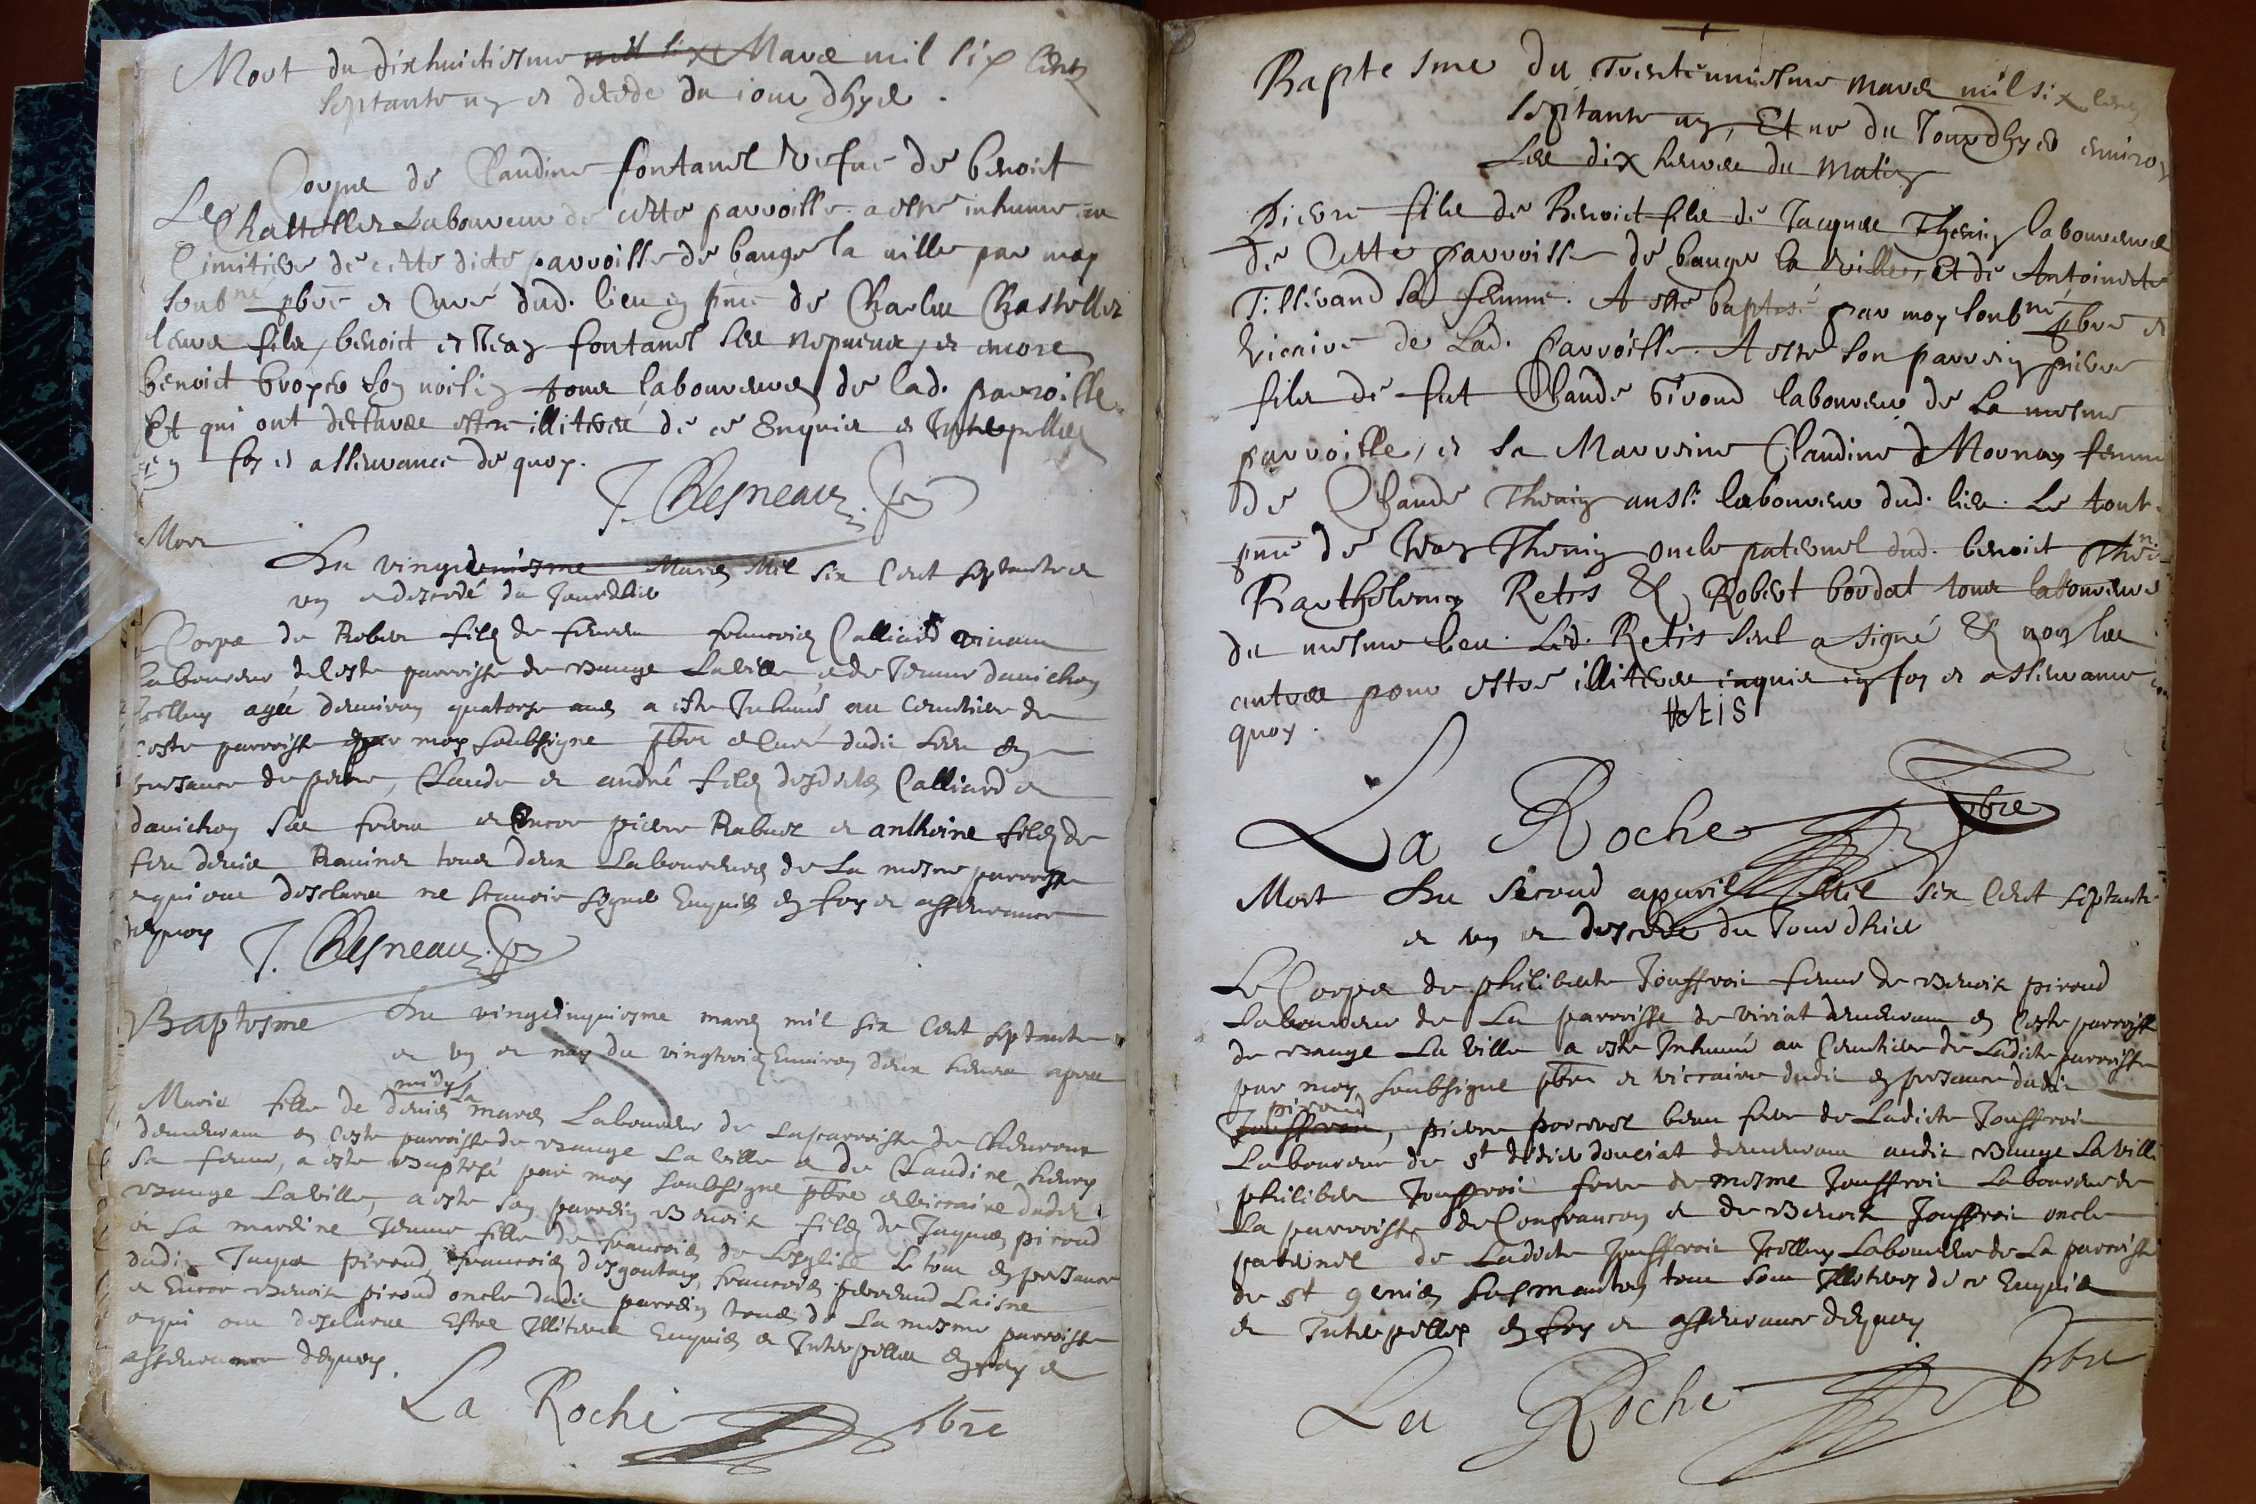 Mort du dixhuictiesme mil six Mars mil six cens
septante ung et decede du iour dhyer.
Le Corps de Claudine fontanel vefue de benoict
Chasteller Laboureur de cette parroisse a esté inhumé au
Cimitiere de cette dicte parroisse de bauge la ville par moy
soubné pbre et Curé dud. lieu en pnce de Charles Chasteller
leurs fils, benoict et Jean fontanel ses nepueus, et encore
benoict broyer son voisin tous laboureurs de lad. parroisse
Et qui ont declaré estre illiterés de ce Enquis et Interpellés
en foy et asseurance de quoy.
J. Chesneau
Mort
Du vingdeuxiesme Mars Mil six Cent septante et
un et descedé du Jourdhier
Corps de Robert fils de feu francois Calliard vivant
laboureur de Ceste parroisse de Bauge La ville, et de Jenne dauichon
agé denviron quatorze ans a esté Inhumé au Cemetiere de
ceste parroisse par moy soubsigne pbre et Curé dudit Lieu En
presance de pierre, Claude et andré fils desdicts Calliard et
dauichon ses freres et Encor pierre Rabuel et anthoine fils de
feu denis Ravinet tous deux Laboureurs de La mesme parroisse
et qui ont desclaré ne scauoir signer Enquis en foy et asseurance
dequoy
J. Chesneau
Baptesme Du vingcinquiesme mars mil six Cent septante
et un et nay du vingtrois Environ deux heures apres
midy
Marie fille de denis La mare Laboureur de La parroisse de Cheuroux
demeurant en Ceste parroisse de Bauge La ville et de Claudine henry
sa femme, a esté Baptisé par moy soubsigne pbre et vicraire dudit
Bauge Laville, a esté son parrein Benoit fils de Jaques piroud
et La mareine Jenne fille de francois de Leglise Le tout en presance
dudit Jaques piroud, francois desgoutes, francois Laisne
et Encor Benoit piroud oncle dudit parrein tous de La mesme parroisse
et qui ont desclaré Estre Illiteres Enquis et Interpelles en foy et
asseurance dequoy.
La Roche pbre
Baptesme du Trente uniesme mars mil six cens
septante un, Et né du Jourdhyer enuiron
Les dix heures du Matin
Pierre fils de Benoict fils de Jacques Thenin laboureurs
de Cette parroisse de bauge la ville, Et de Antoinette
Tilleuand sa femme. A esté baptisé par moy soubné pbre et
vicaire de Lad. parroisse. A esté son parrein pierre
fils de fut Claude Piroud laboureur de La mesme
parroisse, et sa Marreine Claudine d Mornay femme
de Claude Thenin aussi laboureur dud. lieu. Le tout en
pnce de Jean Thenin oncle paternel dud. benoict Thenin
Barthelemy Retis & Robert bordat tous laboureurs
du mesme lieu. Led. Retis seul a signé & non les
autres pour estre illiteres enquis en foy et asseurance de
quoy.
Retis
La Roche pbre
Mort Du second apuril Mil six Cent septante
et un et descede du Jourdhier
Le Corps de philiberte Jouffroi femme de Benoit piroud
Laboureur de La parroisse de viriat demeurant en Ceste parroisse
de Bauge La Ville a esté Inhumé au Cemetiere de Ladicte parroisse
par moy soubsigne pbre et vicraire dudit en presance dudit
piroud
Jouffroi, pierre porceret beau frere de Ladicte Jouffroi
Laboureur de st didier douciat demeurant audit Bauge La ville
philibert Jouffroi frere de mesme Jouffroi Laboureur de
La parroisse de Confrancon et de Benoit Jouffroi oncle
paternel de Ladicte Jouffroi Laboureur de La parroisse
de st genis sus manton tous sont Illiteres de ce Enquis
et Interpelles en foy et asseurance dequoy
La Roche pbre